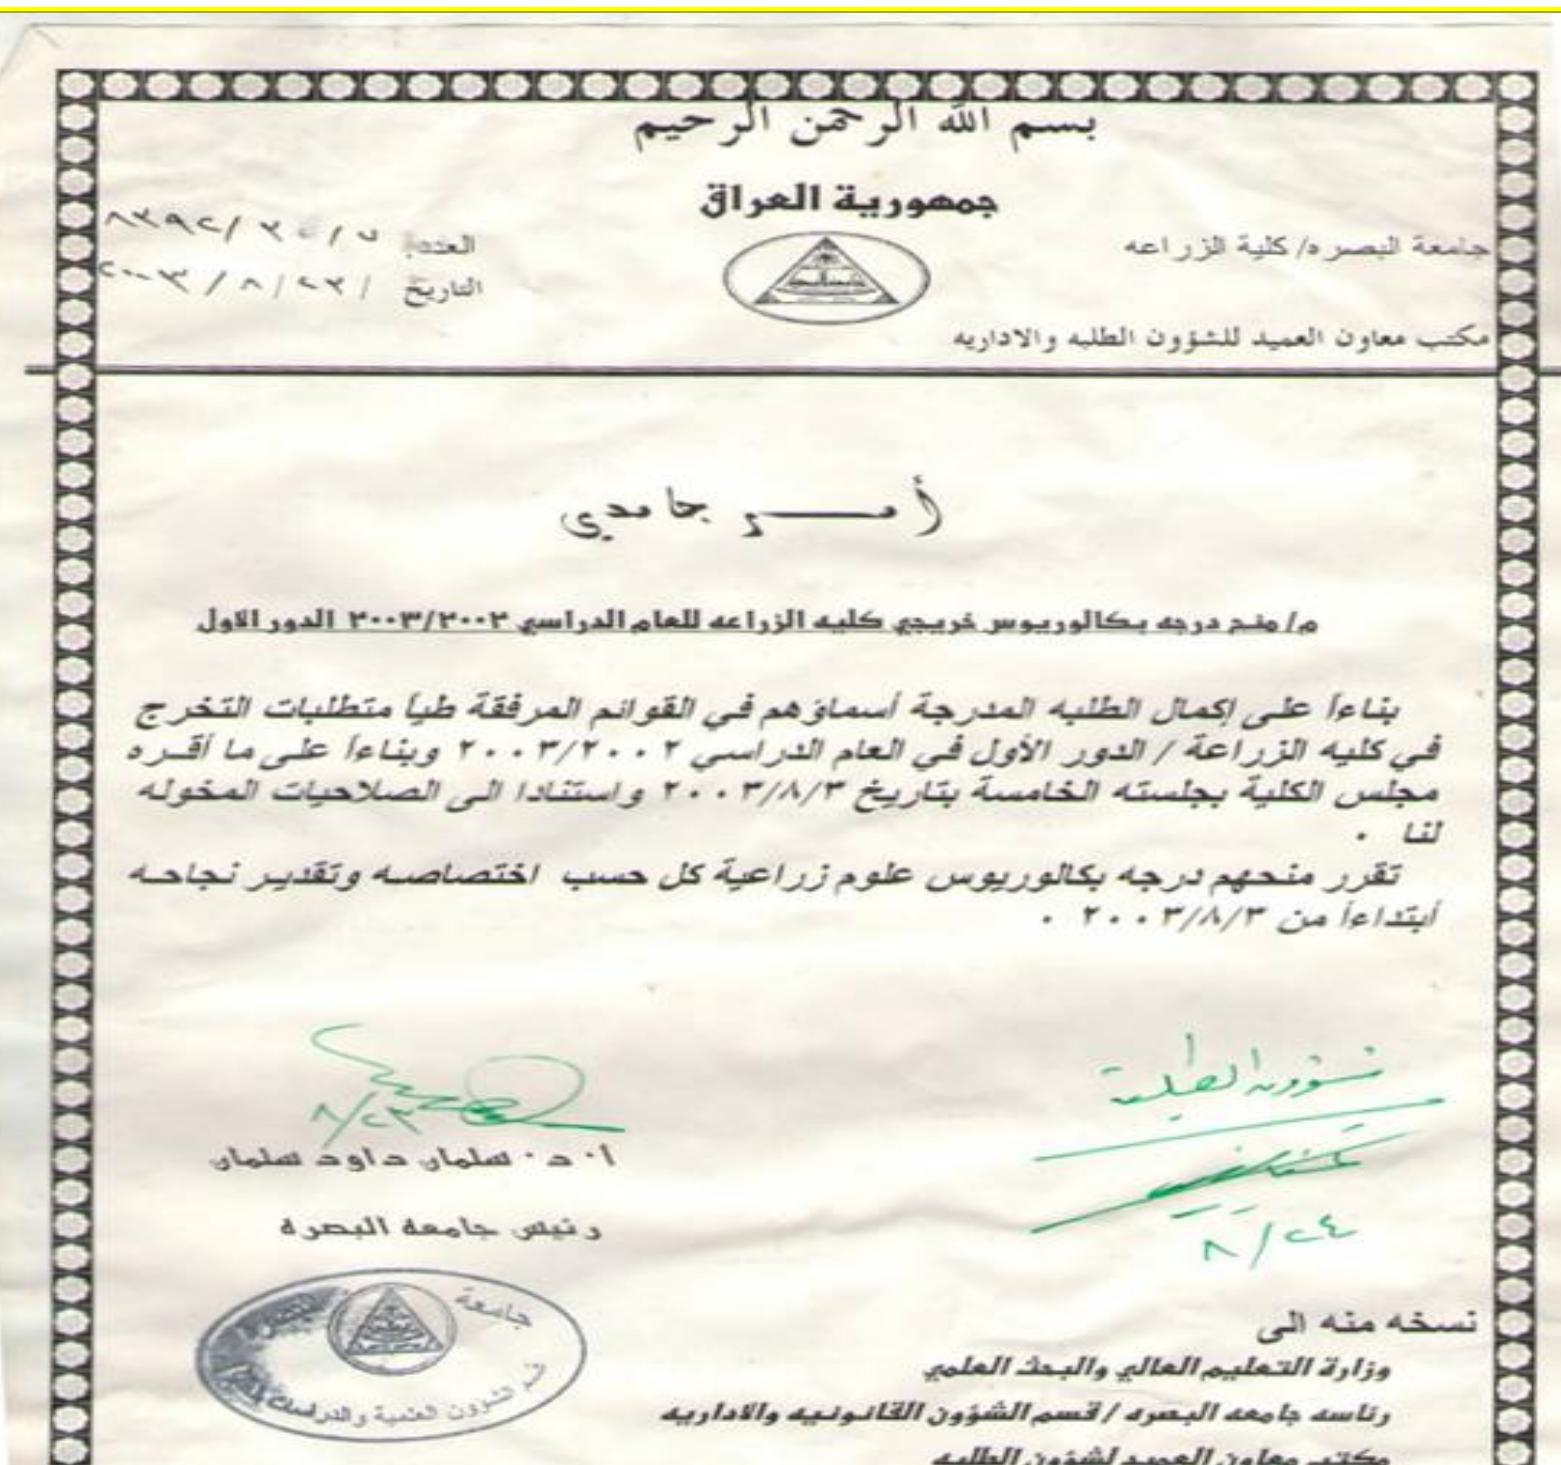 بسم الله الرحمن الرحيم
جمهورية العراق
جامعة البصره/ كلية الزراعه
العدد
التاريخ / ٢٣ / ٨ / ٢٠٠٣
مكتب معاون العميد للشؤون الطلبه والاداريه
أمـــر جامعي
م/ منح درجه بكالوريوس خريجي كليه الزراعه للعام الدراسي ٢٠٠٣/٢٠٠٢ الدور الاول
بناءاً على إكمال الطلبه المدرجة أسماؤهم في القوائم المرفقة طياً متطلبات التخرج
في كليه الزراعة / الدور الأول في العام الدراسي ٢٠٠٣/٢٠٠٢ وبناءاً على ما أقــره
مجلس الكلية بجلسته الخامسة بتاريخ ٢٠٠٣/٨/٣ واستنادا الى الصلاحيات المخوله
لنا .
تقرر منحهم درجه بكالوريوس علوم زراعية كل حسب اختصاصـه وتقديـر نجاحـه
أبتداءاً من ٢٠٠٣/٨/٣ .
شؤون الطلبة
٨/٢٤
٨/٢٣
أ. د. سلمان داود سلمان
رئيس جامعه البصره
جامعة
قسم الشؤون العلمية والدراسات
نسخه منه الى
وزارة التعليم العالي والبحث العلمي
رئاسه جامعه البصره / قسم الشؤون القانونيه والاداريه
مكتب معاون العميد لشؤون الطلبه